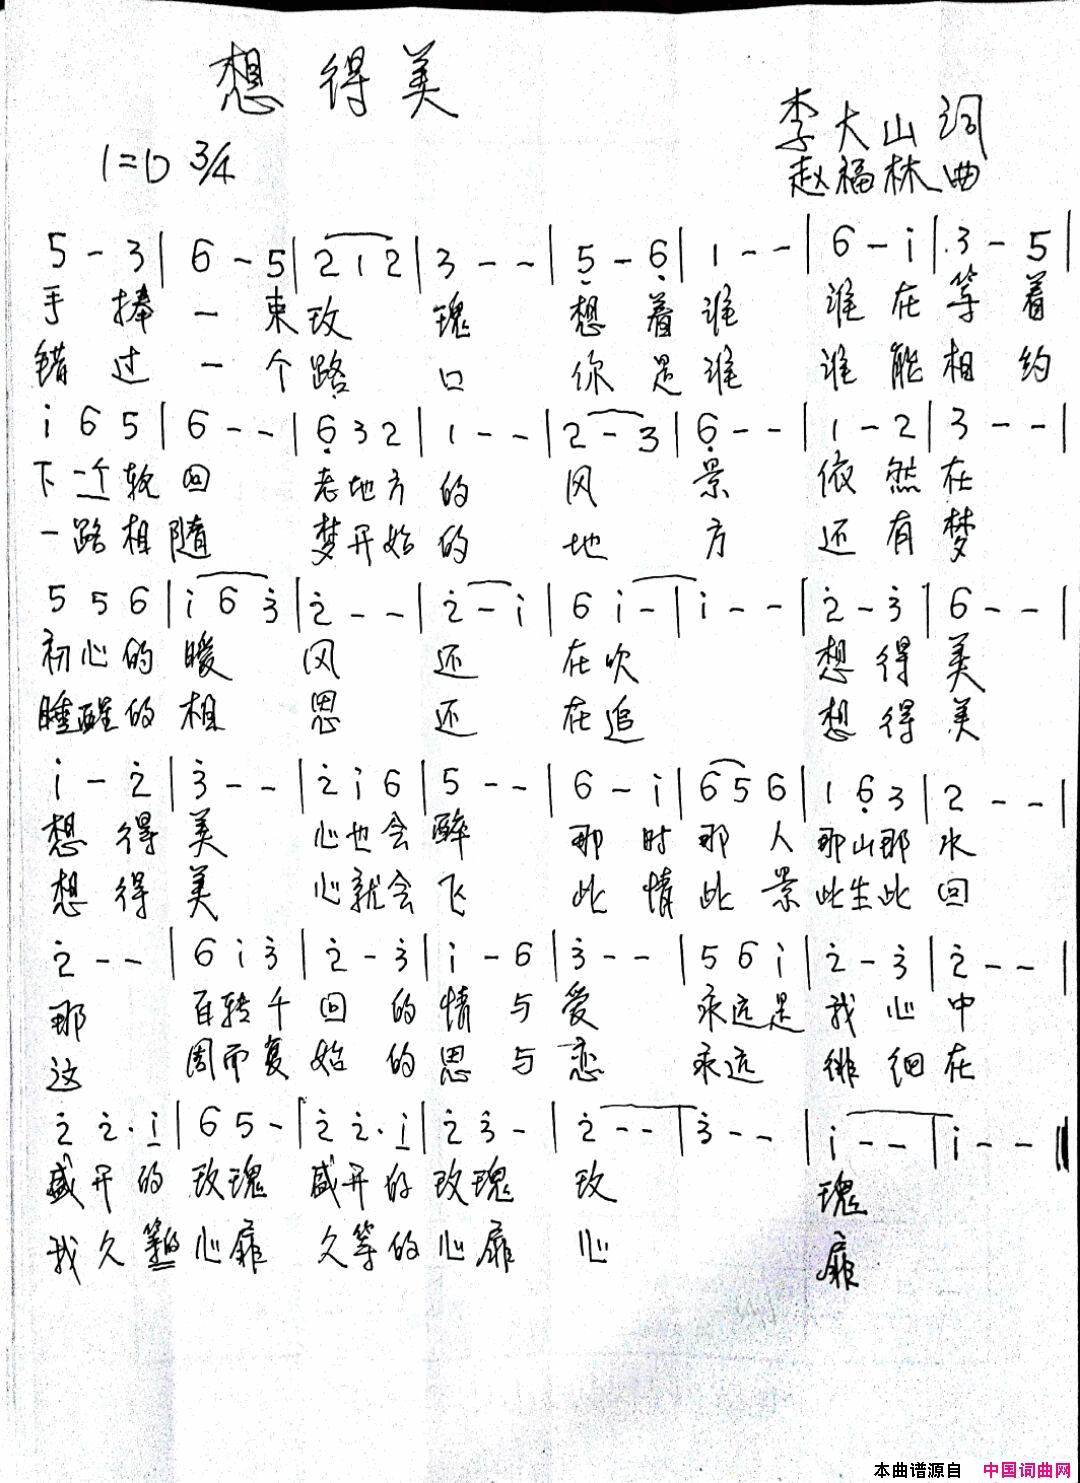 想得美
李大山 词
1=D 3/4
赵福林 曲
5 - 3 | 6 - 5 | 2 1 2 | 3 - - | 5̣ - 6̣ | 1 - - | 6 - i | 3 - 5 |
手捧一束玫瑰 想着谁 谁在等着
错过一个路口 你是谁 谁能相约
i 6 5 | 6 - - | 6̣ 3 2 | 1 - - | 2 - 3 | 6̣ - - | 1 - 2 | 3 - - |
下一个轮回 老地方的风景 依然在
一路相随 梦开始的地方 还有梦
5 5 6 | i 6 3̇ | 2̇ - - | 2̇ - i | 6 i - | i - - | 2̇ - 3̇ | 6 - - |
初心的暖风还在吹 想得美
睡醒的相思还在追 想得美
i - 2̇ | 3̇ - - | 2̇ i 6 | 5 - - | 6 - i | 6 5 6 | 1 6̣ 3 | 2 - - |
想得美 心也会醉 那时那人那山那水
想得美 心就会飞 此情此景此生此回
2̇ - - | 6 i 3̇ | 2̇ - 3̇ | i - 6 | 3̇ - - | 5 6 i | 2̇ - 3̇ | 2̇ - - |
那 百转千回的情与爱 永远是我心中
这 周而复始的思与恋 永远徘徊在
2̇ 2̇· i | 6 5 - | 2̇ 2̇· i | 2̇ 3̇ - | 2̇ - - | 3̇ - - | i - - | i - - ‖
盛开的玫瑰 盛开的玫瑰 玫 瑰
我久等的心扉 久等的心扉 心 扉
本曲谱源自 中国词曲网